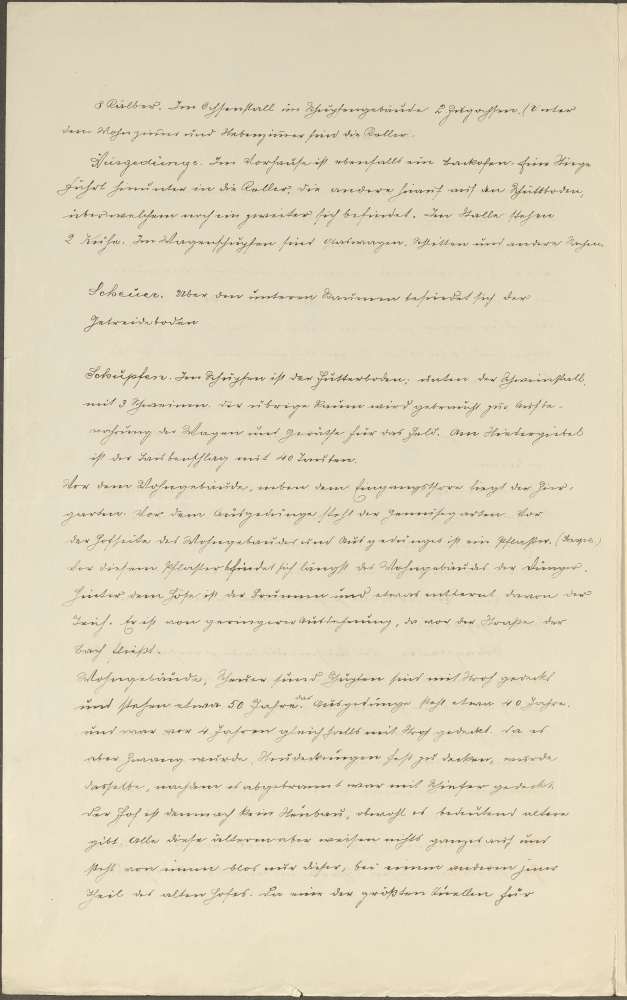 3 Kälber. Im Ochsenstall im Schupfengebäude 2 Zugochsen. (Unter
dem Wohnzimmer und Nebenzimmer sind die Keller.
Ausgedinge. Im Vorhause ist ebenfalls ein Backofen. Eine Stiege
führt hinunter in die Keller, die andere hinauf auf den Schüttboden,
über welchem noch ein zweiter sich befindet. Im Stalle stehen
2 Kühe. Im Wagenschupfen sind Gaswagen, Schlitten und andere Sachen.
Scheuer. Über den unteren Räumen befindet sich der
Getreideboden
Schupfen. Im Schupfen ist der Futterboden; unten der Schweinstall,
mit 3 Schweinen. Der übrige Raum wird gebraucht zur Aufbe-
wahrung der Wagen und Geräthe für das Feld. Am Hintergiebel
ist der Taubenschlag mit 40 Tauben.
Vor dem Wohngebäude, neben dem Eingangsthore liegt der Zier-
garten. Vor dem Ausgedinge steht der Gemüsegarten. Vor
der Hofseite des Wohngebäudes und Ausgedinges ist ein Pflaster.
Vor diesem Pflaster befindet sich längst des Wohngebäudes der Dünger.
Hinter dem Hofe ist der Brunnen und etwas entfernt davon der
Teich. Er ist von geringerer Ausdehnung, da vor der Straße der
Bach fließt.
Wohngebäude, Scheuer und Schupfen sind mit Stroh gedeckt
und stehen etwa 50 Jahre. das Ausgedinge steht etwa 40 Jahre.
und war vor 4 Jahren gleichfalls mit Stroh gedeckt. Da es
aber Zwang wurde, Neudeckungen fest zu decken, wurde
dasselbe, nachdem es abgebrannt war mit Schiefer gedeckt.
Der Hof ist demnach kein Neubau, obwohl es bedeutend ältere
gibt. Alle diese älteren aber weisen nichts ganzes auf und
steht von einem blos nur dieser, bei einem anderen jener
Theil des alten Hofes. Da eine der größten Quellen für